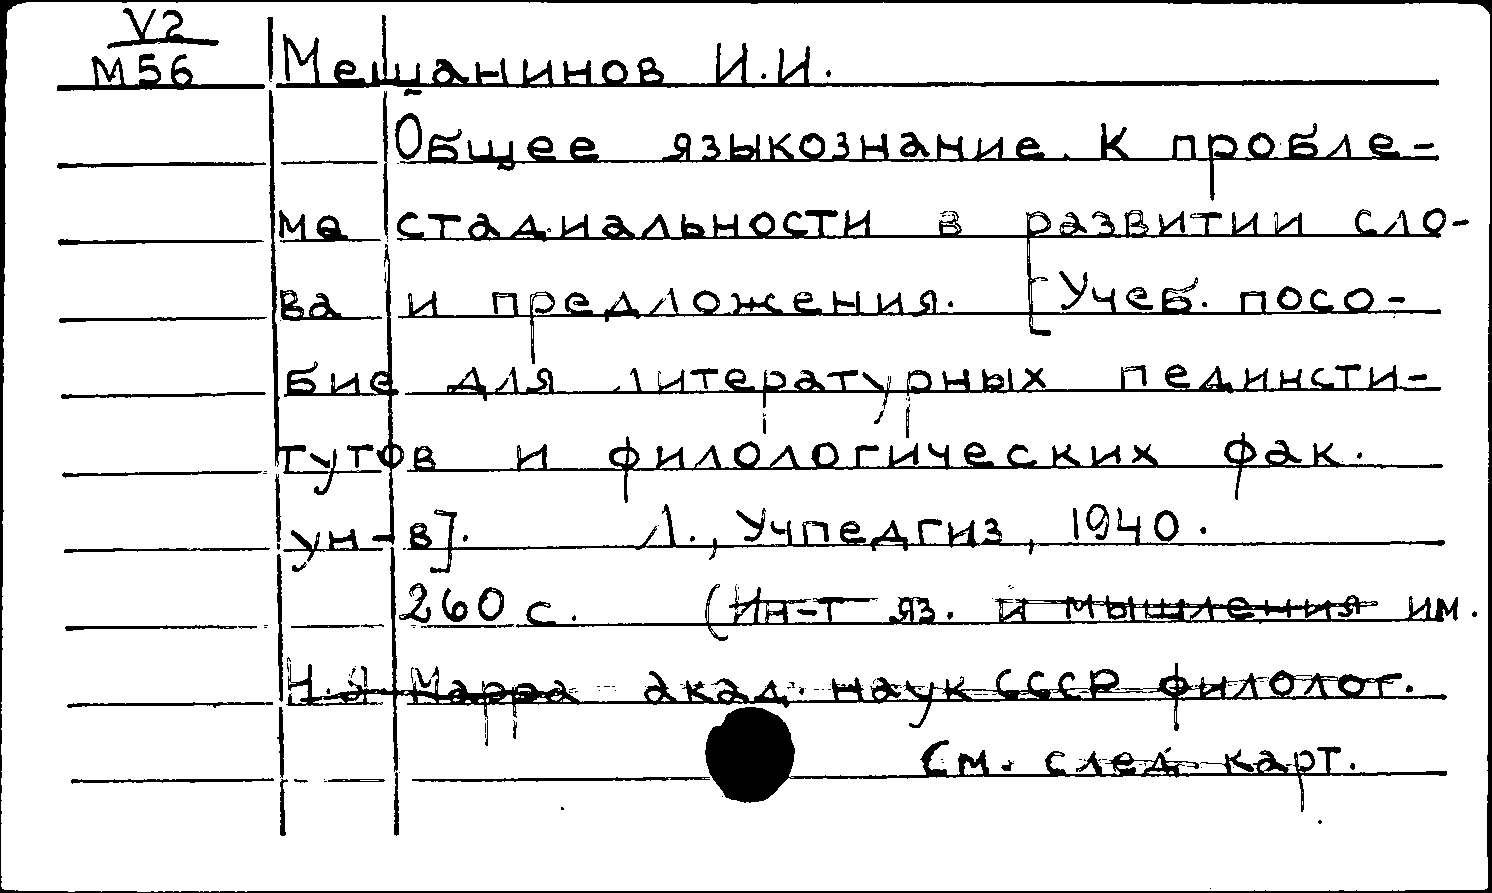 V2
М56
Мещанинов И.И.
Общее языкознание. К пробле-
ме стадиальности в развитии сло-
ва и предложения. [Учеб. посо-
бие для литературных пединсти-
тутов и филологических фак.
ун-в]. Л., Учпедгиз, 1940.
260 с. (Ин-т яз. и мышления им.
Н.Я Марра акад. наук СССР филолог.
См. след. карт.